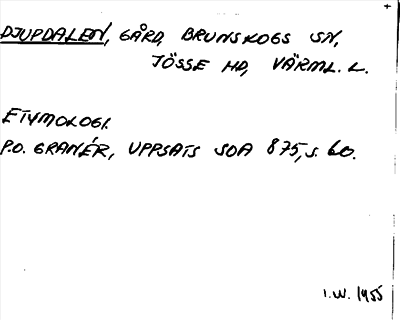 DJUPDALEN, GÅRD, BRUNSKOGS SN,
JÖSSE HD, VÄRML. L.
ETYMOLOGI.
P.O. GRANÉR, UPPSATS SOA 875, S. 60.
I.W. 1955